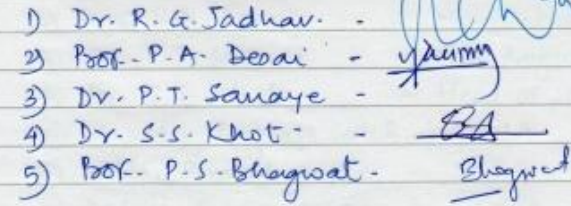 1) Dr. R. G. Jadhav. -
2) Prof. P. A. Desai -
3) Dr. P. T. Sanaye -
4) Dr. S. S. Khot - -
5) Prof. P. S. Bhagwat - Bhagwat